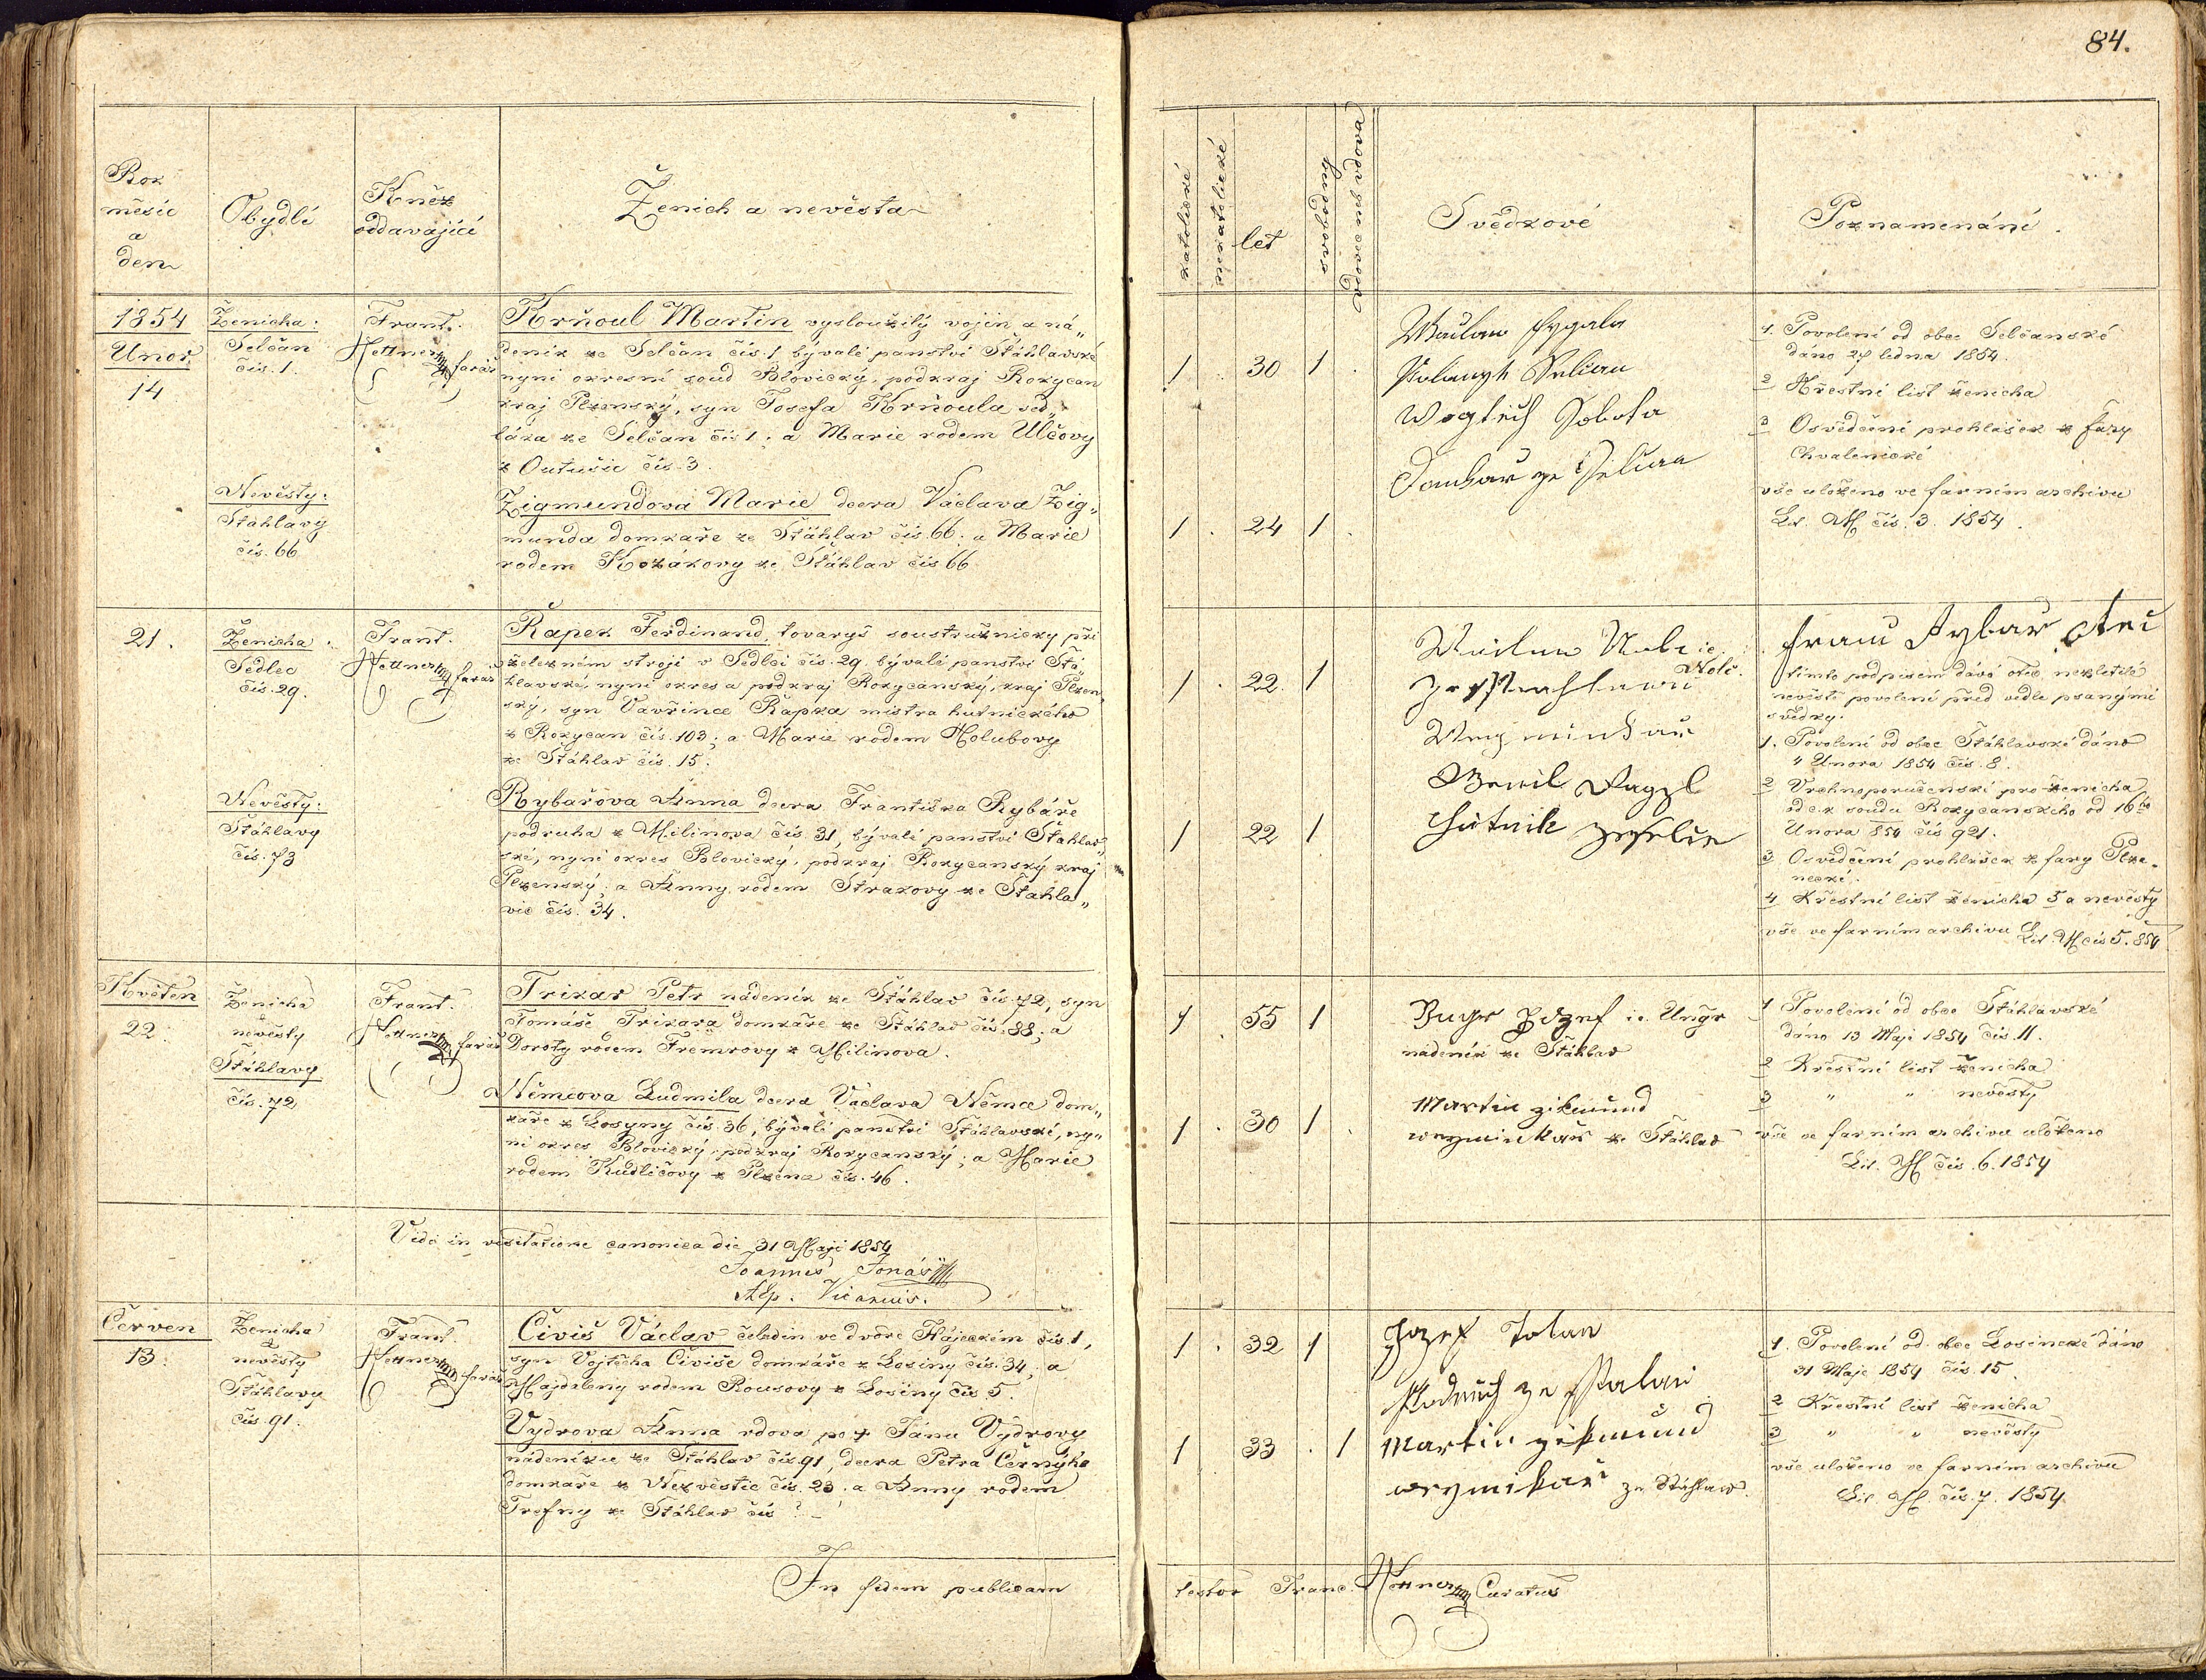 84.
Rok
měsíc
a
den
Obydlí
Kněz
oddavající
Ženich a nevěsta
katolické
nekatolické
let
svobodný
vdovec neb vdova
Svědkové
Poznamenání.
1854
Únor
14
Ženicha:
Selčan
čís. 1.
Frant.
Hettner farář
Krňoul Martin vysloužilý vojín a ná„
deník ze Selčan čís. 1 bývalé panství Štáhlavské
nyní okresní soud Blovický, podkraj Rokycan
kraj Plzenský, syn Josefa Krňoula sed„
láka ze Selčan čís 1; a Marie rodem Ulčovy
z Outušic čís. 3.
Nevěsty:
Štáhlavy
čís. 66
Zigmundová Marie dcera Václava Zig„
munda domkaře ze Štáhlav čís. 66. a Marie
rodem Kozákovy ze Štáhlav čís 66
1 . 30 1 .
1 . 24 1 .
Wogtěch Sobota
1. Povolení od obce Selčanské
dáno 27 ledna 1854.
2 Křestní list ženicha
3 Osvědčení prohlášek z fary
Chvalenické
vše uloženo ve farním archivu
Lit. M čís. 3. 1854.
21.
Ženicha:
Sedlec
čís. 29.
Frant.
Hettner farář
Řapek Ferdinand, tovaryš soustružnický při
železném stroji v Sedlci čís. 29. bývalé panství Štá„
hlavské, nyní okres a podkraj Rokycanský, kraj Plzen„
ský, syn Vavřince Řapka mistra hutnického
z Rokycan čís. 103; a Marie rodem Holubovy
ze Štáhlav čís. 15.
Nevěsty:
Štáhlavy
čís. 73
Rybařova Anna dcera Františka Rybáře
podruha z Milínova čís. 31, bývalé panství Štahlav„
ské, nyní okres Blovický, podkraj Rokycanský kraj
Plzenský; a Anny rodem Strakovy ze Štahla„
vic čís. 34.
1 . 22. 1
1 22 1
Franc Rybař otec
tímto podpisem dává otec nezletilé
nevěstě povolení před vedle psanými
svědky.
1. Povolení od obce Štáhlavské dáno
4 Února 1854 čís. 8.
2 Vrchnoporučenské pro ženicha
od c.k. soudu Rokycanského od 16ho
Února 854 čís 921.
3 Osvědčení prohlášek z fary Plze-
necké.
4 Křestní list ženicha 5 a nevěsty
vše ve farním archivu Lit. M čís 5. 854
Květen
22.
Ženicha
a
nevěsty
Štáhlavy
čís. 72
Frant.
Hettner farář
Trikar Petr nádeník ze Štáhlav čís. 72, syn
Tomáše Trikara domkáře ze Štáhlav čís. 88; a
Doroty rodem Fremrovy z Milinova.
Němcova Ludmila dcera Václava Němce dom„
káře z Losyny čís. 36, bývalé panství Štáhlavské, ny„
ní okres Blovický, podkraj Rokycanský; a Marie
rodem Kudličovy z Plzence čís. 46.
1 . 55 1
1 . 30 1 .
Ungr Jozef ie. Ungr
nádeník ze Štáhlav
Martin zikmund
weyminkař ze Štáhlav
1 Povolení od obce Štáhlavské
dáno 13 Maje 1854 čís. 11.
2 Křestní list ženicha
3 „ „ nevěsty
vše ve farním archivu uloženo
Lit. M čís. 6. 1854
Vidi in visitatione canonica die 31 Maji 1854
Joannes Jonáš
Vicarius.
Červen
13.
Ženicha
a
nevěsty
Štáhlavy
čís. 91.
Frant.
Hettner farář
Čiviš Václav čeledín ve dvoře Hájeckém čís. 1,
syn Vojtěcha Čiviše domkáře z Losiny čís. 34, a
Majdaleny rodem Rousovy z Losiny čís 5.
Vydrova Anna vdova po † Jánu Vydrovy
nádeníku ze Štáhlav čís. 91, dcera Petra Černýho
domkaře z Nezvěstic čís. 23. a Anny rodem
Trefny ze Štáhlav čís ? –
1 . 32 1
1 33 . 1
Martin zikmund
weyminkař ze Stáhlaw.
1. Povolení od obce Losinecké dáno
31 Maje 1854 čís. 15.
2 Křestní list ženicha
3 „ „ nevěsty
vše uloženo ve farním archivu
Lit. M. čís. 7. 1854.
In fidem publicam
testor Franc. Hettner Curatus